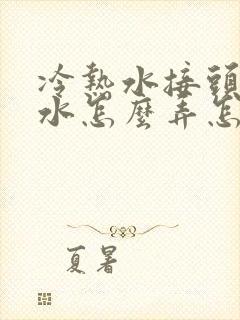 冷熱水接頭
水怎麼弄怎
夏暑